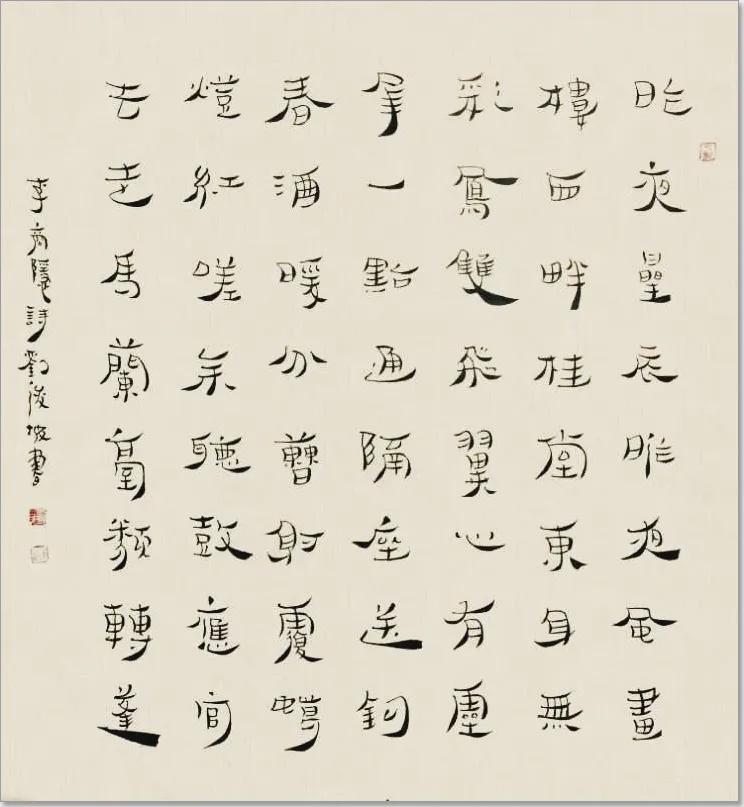 昨夜星辰昨夜風畫
樓西畔桂堂東身無
彩鳳雙飛翼心有靈
犀一點通隔座送鉤
春酒暖分曹射覆蠟
燈紅嗟余聽鼓應官
去走馬蘭臺類轉蓬
李商隱詩劉俊坡書